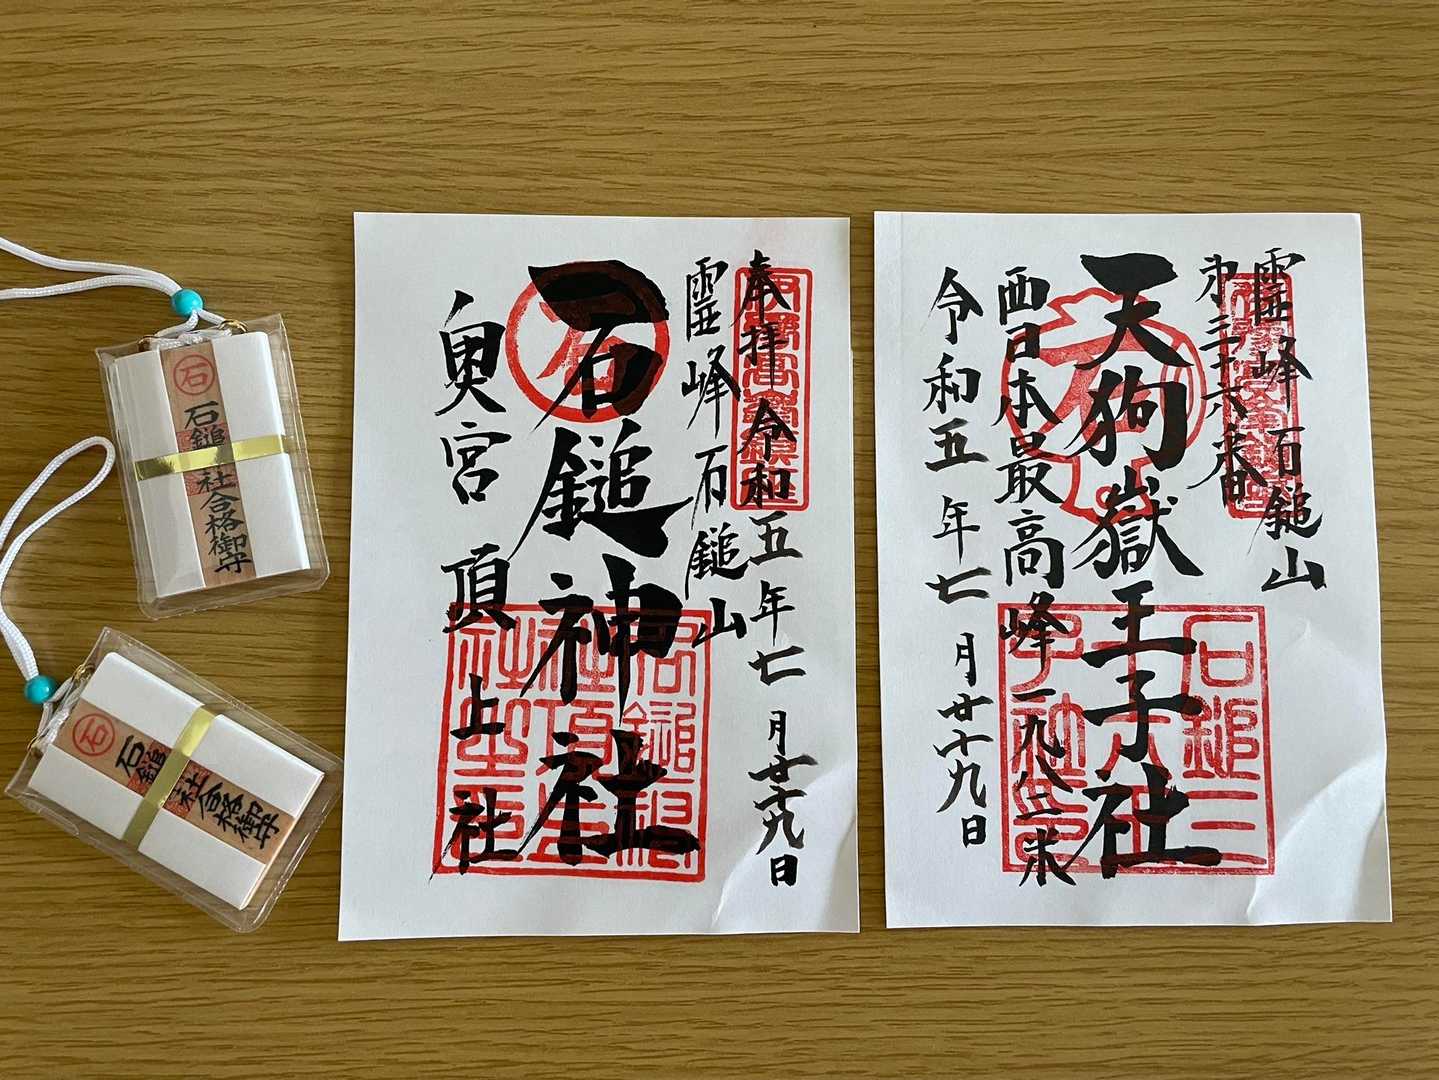 石
石鎚社合格御守
石
石鎚社合格御守
奉拝 令和五年七月廿九日
霊峰石鎚山
石鎚神社
奥宮頂上社
霊峰石鎚山
第三十六番
天狗嶽王子社
西日本最高峰一九八二米
令和五年七月廿九日